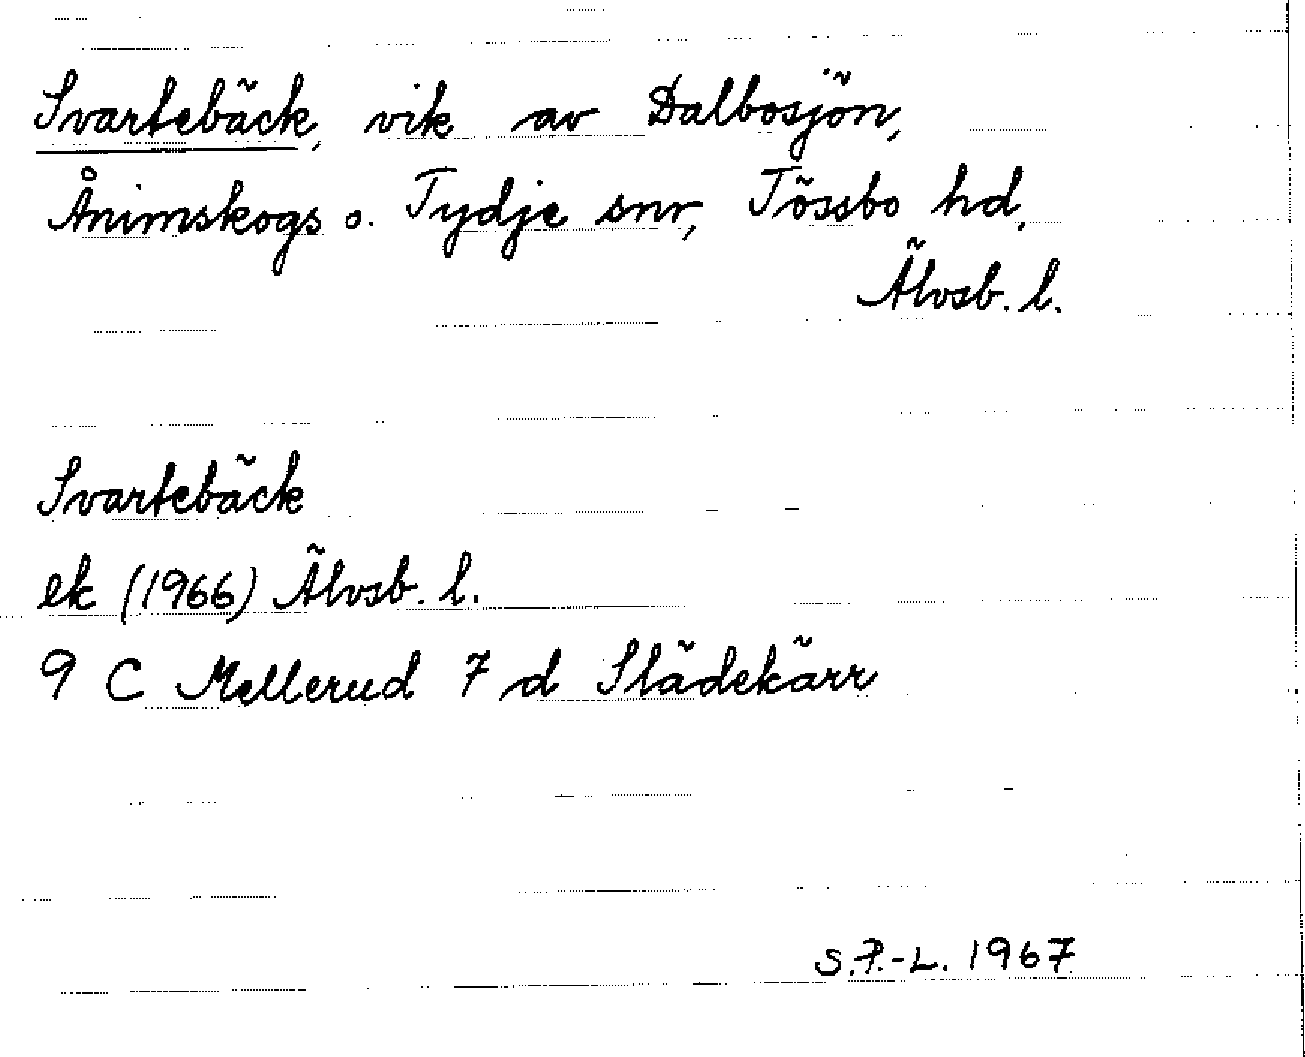 Svartebäck, vik av Dalbosjön,
Ånimskogs o. Tydje snr, Tössbo hd,
Älvsb. l.
Svartebäck
ek (1966) Älvsb. l.
9 C Mellerud 7 d Slädekärr
S.P.-L. 1967